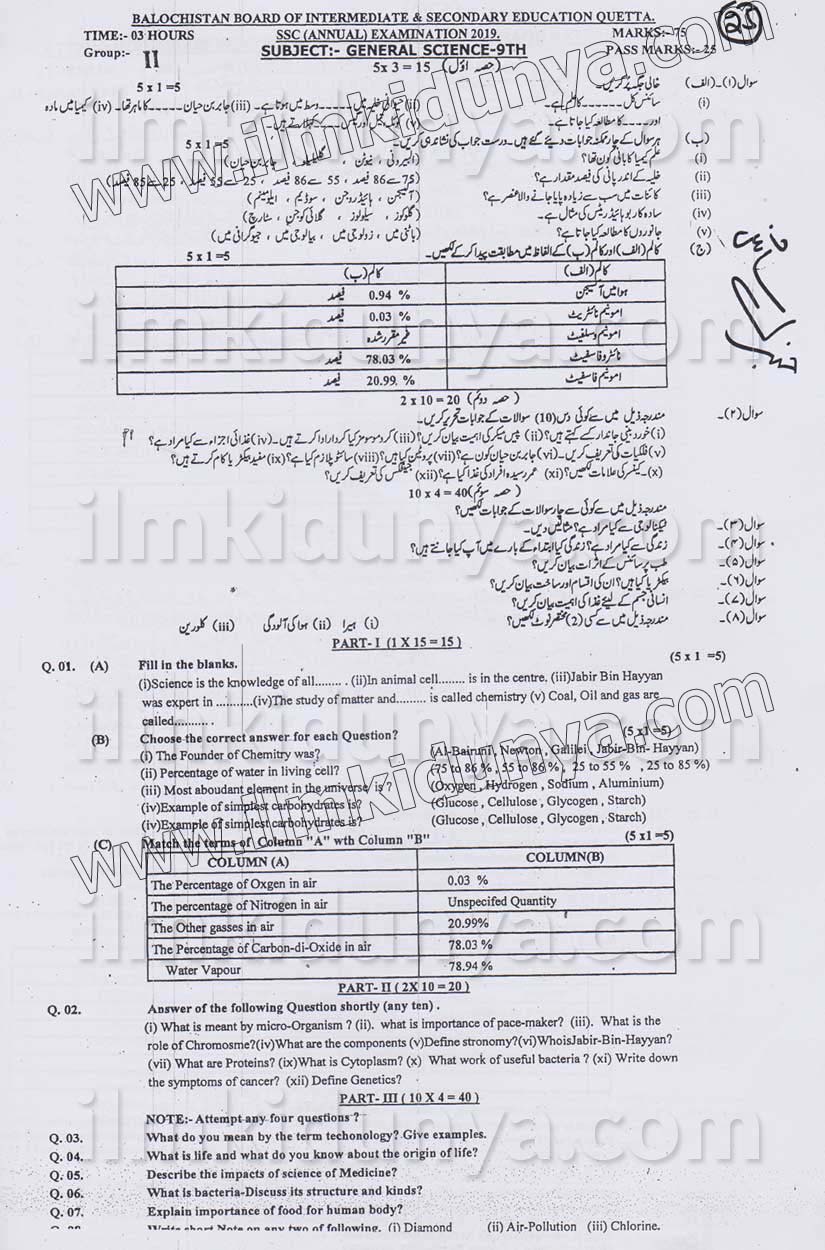 BALOCHISTAN BOARD OF INTERMEDIATE & SECONDARY EDUCATION QUETTA.
23
TIME:- 03 HOURS SSC (ANNUAL) EXAMINATION 2019. MARKS:-75
Group:- II SUBJECT:- GENERAL SCIENCE-9TH PASS MARKS:-25
5x 3 = 15 (حصہ اوّل)
سوال(۱)۔ (الف) خالی جگہ پُر کریں۔ 5 x 1 =5
(i) سائنس کُل ۔۔۔۔۔۔ کا علم ہے۔ (ii) حیوانی خلیہ میں ۔۔۔۔۔ وسط میں ہوتا ہے۔ (iii) جابر بن حیان ۔۔۔۔۔ کا ماہر تھا۔ (iv) کیمیا میں مادہ
اور ۔۔۔۔ کا مطالعہ کیا جاتا ہے۔ (v) کوئلہ، تیل اور گیس ۔۔۔۔ کہلاتے ہیں۔
(ب) ہر سوال کے چار ممکنہ جوابات دیئے گئے ہیں۔ درست جواب کی نشاندہی کریں۔ 5 x 1 =5
(i) علم کیمیا کا بانی کون تھا؟ (البیرونی ، نیوٹن ، گلیلیو ، جابر بن حیان)
(ii) خلیہ کے اندر پانی کی فیصد مقدار ہے؟ (75 سے 86 فیصد ، 55 سے 86 فیصد ، 25 سے 55 فیصد ، 25 سے 85 فیصد)
(iii) کائنات میں سب سے زیادہ پایا جانے والا عنصر ہے؟ (آکسیجن ، ہائیڈروجن ، سوڈیم ، ایلومینیم)
(iv) سادہ کاربوہائیڈریٹس کی مثال ہے۔ (گلوکوز ، سیلولوز ، گلائی کوجن ، سٹارچ)
(v) جانوروں کا مطالعہ کیا جاتا ہے؟ (باٹنی میں ، زولوجی میں ، بیالوجی میں ، جیوگرافی میں)
(ج) کالم (الف) اور کالم (ب) کے الفاظ میں مطابقت پیدا کر کے لکھیں۔ 5 x 1 =5
کالم (الف) کالم (ب)
ہوا میں آکسیجن 0.94 % فیصد
امونیم نائٹریٹ 0.03 % فیصد
امونیم سلفیٹ غیر مقرر شدہ
نائٹروفاسفیٹ 78.03 % فیصد
امونیم فاسفیٹ 20.99. % فیصد
2 x 10 = 20 (حصہ دوئم)
سوال(۲)۔ مندرجہ ذیل میں سے کوئی دس (10) سوالات کے جوابات تحریر کریں۔
(i) خوردبینی جاندار کسے کہتے ہیں؟ (ii) پیس میکر کی اہمیت بیان کریں؟ (iii) کروموسومز کیا کردار ادا کرتے ہیں۔ (iv) غذائی اجزاء سے کیا مراد ہے؟
(v) فلکیات کی تعریف کریں۔ (vi) جابر بن حیان کون ہے؟ (vii) پروٹین کیا ہیں؟ (viii) سائٹوپلازم کیا ہے؟ (ix) مفید بیکٹریا کیا کام کرتے ہیں؟
(x)۔ کینسر کی علامات لکھیں؟ (xi) عمر رسیدہ افراد کی غذا کیا ہے؟ (xii) جینیٹکس کی تعریف کریں؟
10 x 4 = 40 (حصہ سوئم)
مندرجہ ذیل میں سے کوئی سے چار سوالات کے جوابات لکھیں؟
سوال(۳)۔ ٹیکنالوجی سے کیا مراد ہے؟ مثالیں دیں۔
سوال(۴)۔ زندگی سے کیا مراد ہے؟ زندگی کی ابتداء کے بارے میں آپ کیا جانتے ہیں؟
سوال(۵)۔ طب پر سائنس کے اثرات بیان کریں؟
سوال(۶)۔ بیکٹریا کیا ہیں؟ ان کی اقسام اور ساخت بیان کریں؟
سوال(۷)۔ انسانی جسم کے لیئے غذا کی اہمیت بیان کریں؟
سوال(۸)۔ مندرجہ ذیل میں سے کسی (2) مختصر نوٹ لکھیں؟ (i) ہیرا (ii) ہوا کی آلودگی (iii) کلورین
PART- I (1 X 15 = 15 )
Q. 01. (A) Fill in the blanks. (5 x 1 =5)
(i)Science is the knowledge of all........ . (ii)In animal cell........ is in the centre. (iii)Jabir Bin Hayyan
was expert in ...........(iv)The study of matter and......... is called chemistry (v) Coal, Oil and gas are
called.......... .
(B) Choose the correct answer for each Question? (5 x1 =5)
(i) The Founder of Chemitry was? (Al-Bairuni, Newton , Galilei , Jabir-Bin- Hayyan)
(ii) Percentage of water in living cell? (75 to 86 % , 55 to 86% , 25 to 55 % , 25 to 85 %)
(iii) Most aboudant element in the universe is ? (Oxygen , Hydrogen , Sodium , Aluminium)
(iv)Example of simplest carbohydrates is? (Glucose , Cellulose , Glycogen , Starch)
(iv)Example of simplest carbohydrates is? (Glucose , Cellulose , Glycogen , Starch)
(C) Match the terms of Column "A" wth Column "B" (5 x1 =5)
COLUMN (A) COLUMN(B)
The Percentage of Oxgen in air 0.03 %
The percentage of Nitrogen in air Unspecifed Quantity
The Other gasses in air 20.99%
The Percentage of Carbon-di-Oxide in air 78.03 %
Water Vapour 78.94 %
PART- II ( 2X 10 = 20 )
Q. 02. Answer of the following Question shortly (any ten) .
(i) What is meant by micro-Organism ? (ii). what is importance of pace-maker? (iii). What is the
role of Chromosme?(iv)What are the components (v)Define stronomy?(vi)WhoisJabir-Bin-Hayyan?
(vii) What are Proteins? (ix)What is Cytoplasm? (x) What work of useful bacteria ? (xi) Write down
the symptoms of cancer? (xii) Define Genetics?
PART- III ( 10 X 4 = 40 )
NOTE:- Attempt any four questions ?
Q. 03. What do you mean by the term techonology? Give examples.
Q. 04. What is life and what do you know about the origin of life?
Q. 05. Describe the impacts of science of Medicine?
Q. 06. What is bacteria-Discuss its structure and kinds?
Q. 07. Explain importance of food for human body?
Write short Note on any two of following. (i) Diamond (ii) Air-Pollution (iii) Chlorine.
www.ilmkidunya.com
www.ilmkidunya.com
ilmkidunya.com
ilmkidunya.com
ilmkidunya.com
ilmkidunya.com
ilmkidunya.com
ilmkidunya.com